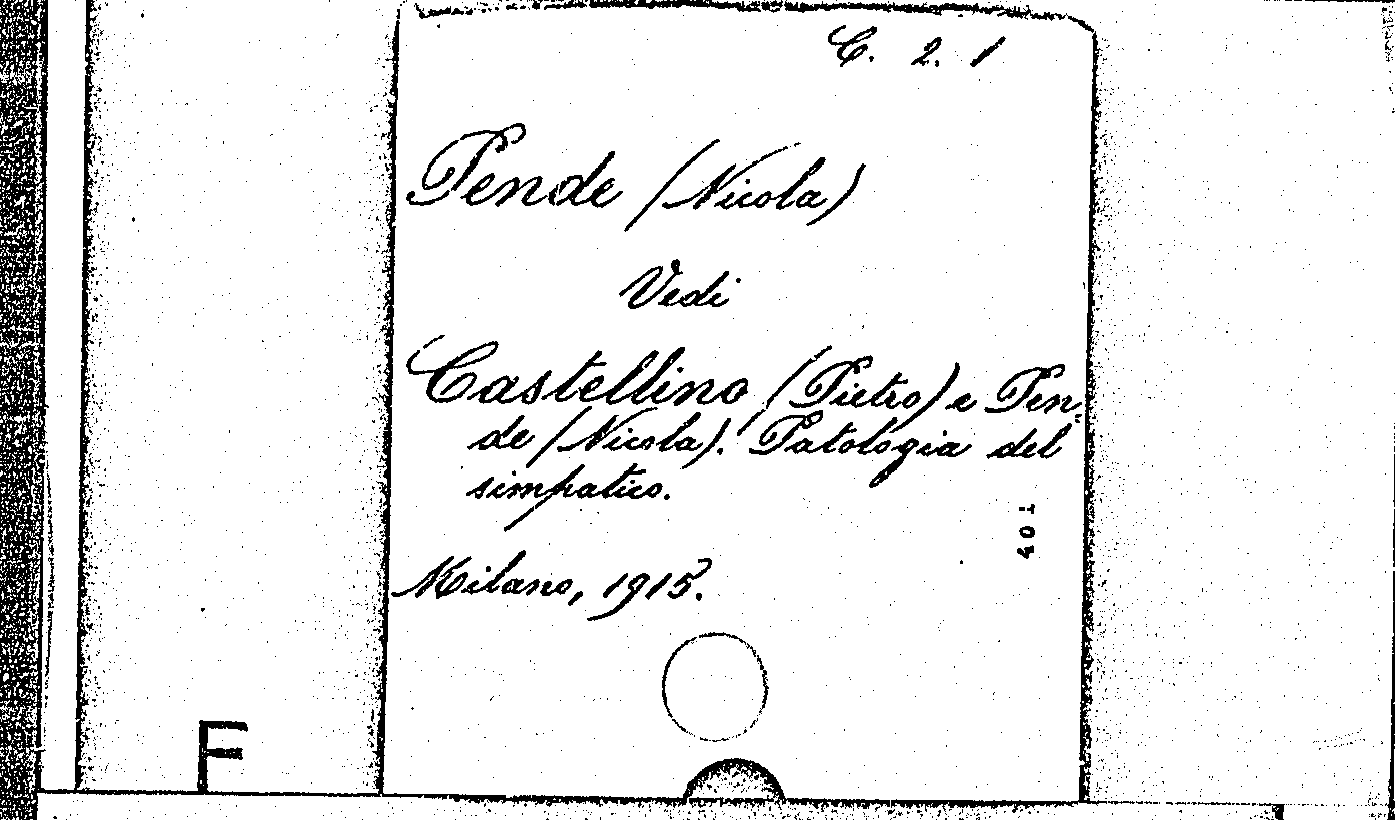 C. 2. 1
Pende (Nicola)
Vedi
Castellino (Pietro) e Pen-
de (Nicola). Patologia del
simpatico.
Milano, 1915.
F